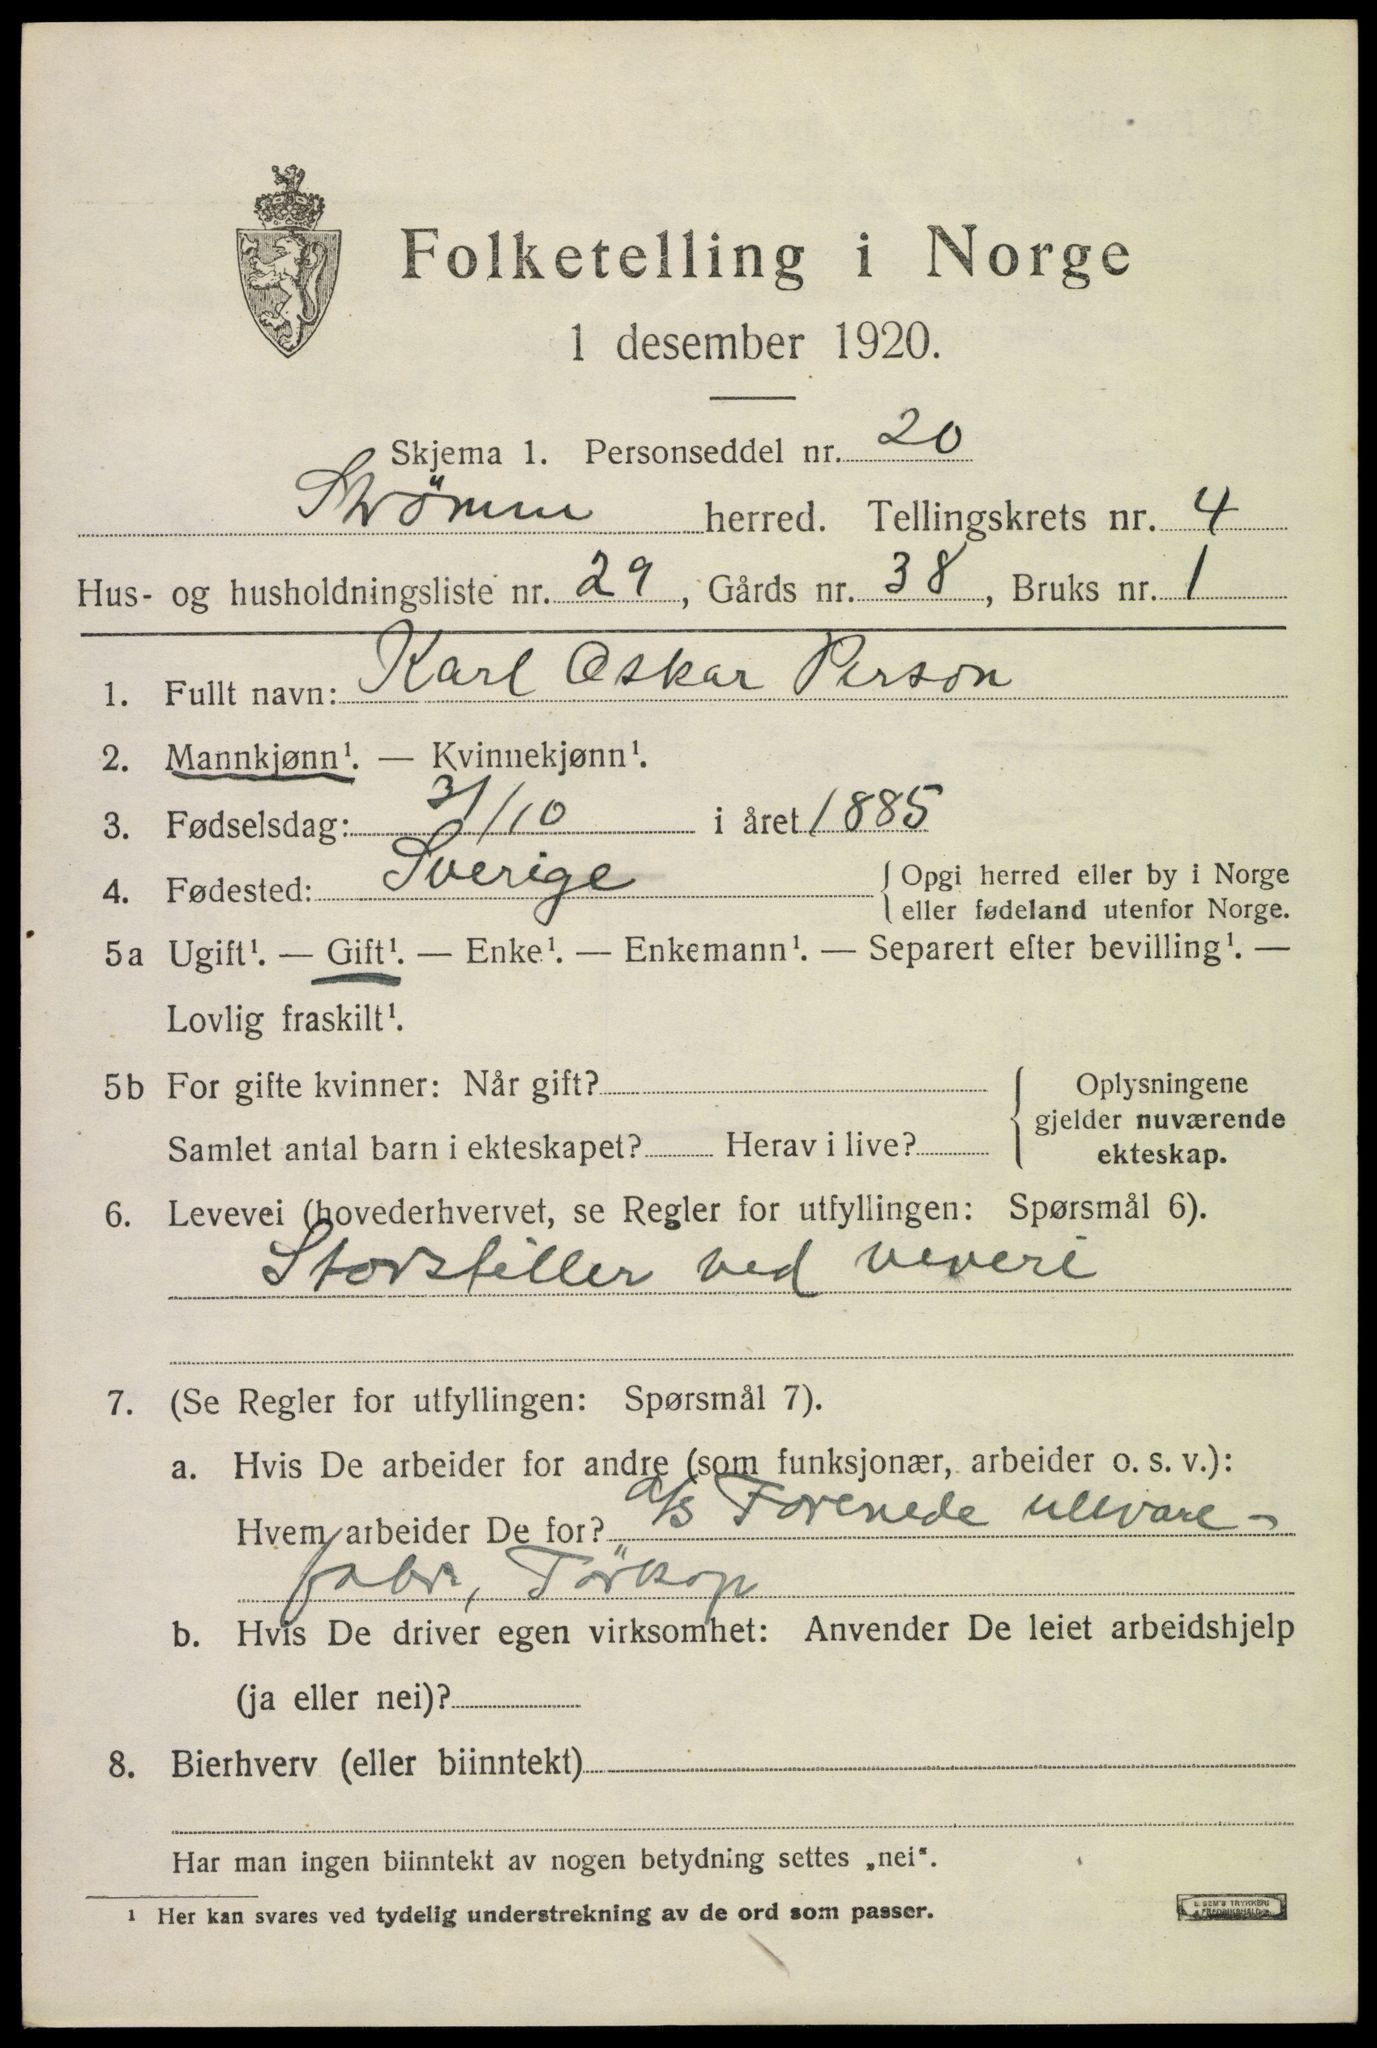 Folketelling i Norge
1 desember 1920.
Skjema 1. Personseddel nr. 20
Strömm herred. Tellingskrets nr. 4
Hus- og husholdningsliste nr. 29, Gårds nr. 38, Bruks nr. 1
1. Fullt navn: Karl Oskar Person
2. Mannkjønn¹. — Kvinnekjønn¹.
3. Fødselsdag: 31/10 i året 1885
4. Fødested: Sverige { Opgi herred eller by i Norge
eller fødeland utenfor Norge.
5a Ugift¹. — Gift¹. — Enke¹. — Enkemann¹. — Separert efter bevilling¹. —
Lovlig fraskilt¹.
5b For gifte kvinner: Når gift? { Oplysningene
gjelder nuværende
Samlet antal barn i ekteskapet? Herav i live? ekteskap.
6. Levevei (hovederhvervet, se Regler for utfyllingen: Spørsmål 6).
Storstiller ved veveri
7. (Se Regler for utfyllingen: Spørsmål 7).
a. Hvis De arbeider for andre (som funksjonær, arbeider o. s. v.):
Hvem arbeider De for? a/s Forenede ullvare-
fabr, Törkop
b. Hvis De driver egen virksomhet: Anvender De leiet arbeidshjelp
(ja eller nei)?
8. Bierhverv (eller biinntekt)
Har man ingen biinntekt av nogen betydning settes „nei".
¹ Her kan svares ved tydelig understrekning av de ord som passer.
E. SEM'S TRYKKERI
FREDRIKSHALD